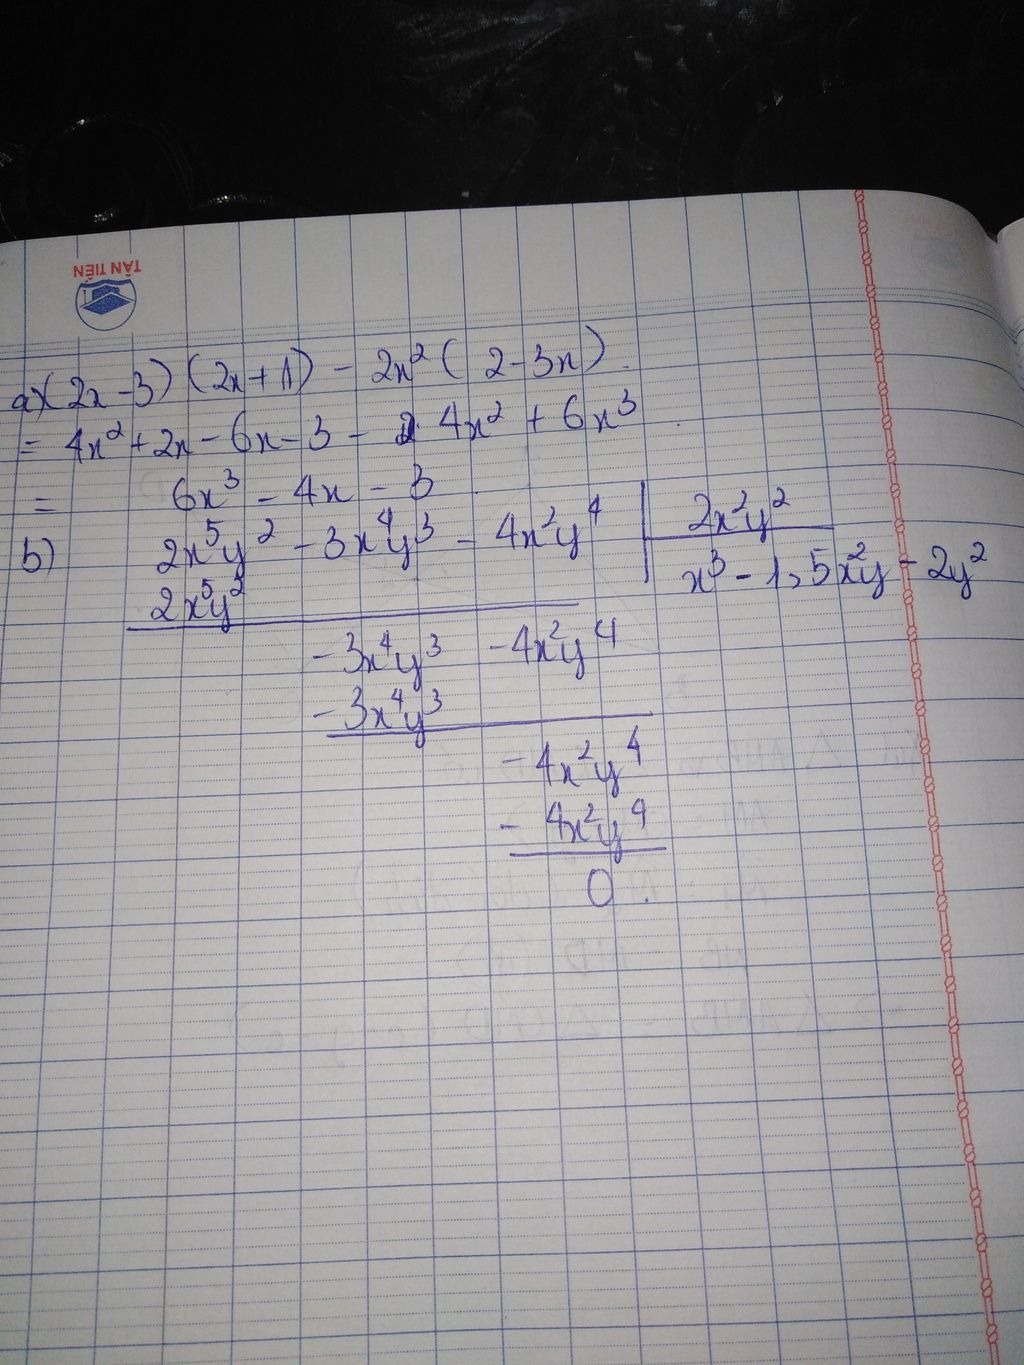 TÂN TIẾN
a) (2x - 3) (2x + 1) - 2x² ( 2 - 3x ).
= 4x² + 2x - 6x - 3 - 4x² + 6x³
= 6x³ - 4x - 3
b) 2x⁵y² - 3x⁴y³ - 4x²y⁴ | 2x²y²
2x⁵y² x³ - 1,5x²y - 2y²
- 3x⁴y³ - 4x²y⁴
- 3x⁴y³
- 4x²y⁴
- 4x²y⁴
0